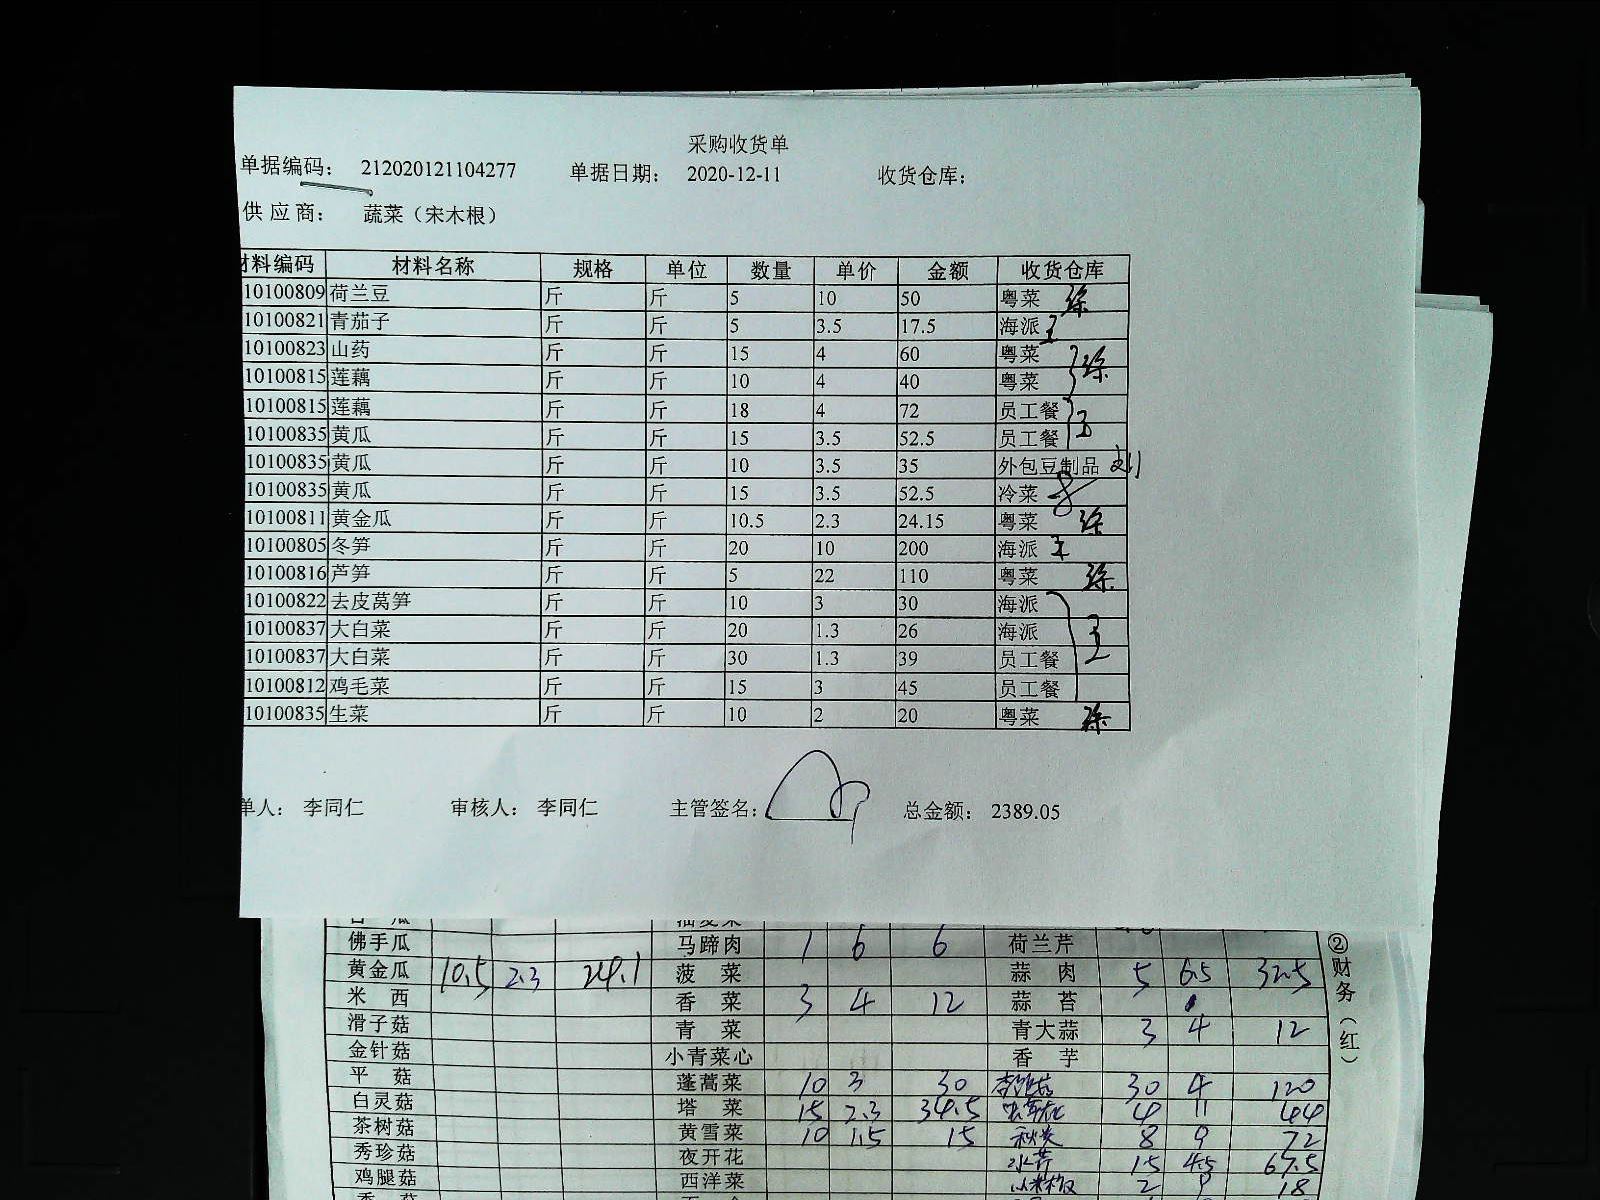 采购收货单
单据编码： 212020121104277 单据日期： 2020-12-11 收货仓库：
供应商： 蔬菜（宋木根）
材料编码 材料名称 规格 单位 数量 单价 金额 收货仓库
10100809 荷兰豆 斤 斤 5 10 50 粤菜 徐
10100821 青茄子 斤 斤 5 3.5 17.5 海派 王
10100823 山药 斤 斤 15 4 60 粤菜
10100815 莲藕 斤 斤 10 4 40 粤菜 徐
10100815 莲藕 斤 斤 18 4 72 员工餐
10100835 黄瓜 斤 斤 15 3.5 52.5 员工餐 王
10100835 黄瓜 斤 斤 10 3.5 35 外包豆制品 刘
10100835 黄瓜 斤 斤 15 3.5 52.5 冷菜
10100811 黄金瓜 斤 斤 10.5 2.3 24.15 粤菜 徐
10100805 冬笋 斤 斤 20 10 200 海派 王
10100816 芦笋 斤 斤 5 22 110 粤菜 徐
10100822 去皮莴笋 斤 斤 10 3 30 海派
10100837 大白菜 斤 斤 20 1.3 26 海派 王
10100837 大白菜 斤 斤 30 1.3 39 员工餐
10100812 鸡毛菜 斤 斤 15 3 45 员工餐
10100835 生菜 斤 斤 10 2 20 粤菜 徐
单人： 李同仁 审核人： 李同仁 主管签名： 总金额： 2389.05
佛手瓜 马蹄肉 1 6 6 荷兰芹
黄金瓜 10.5 2.3 24.1 菠菜 蒜肉 5 6.5 32.5
米西 香菜 3 4 12 蒜苔
滑子菇 青菜 青大蒜 3 4 12
金针菇 小青菜心 香芋
平菇 蓬蒿菜 10 3 30 30 4 120
白灵菇 塔菜 15 2.3 34.5 4 11 44
茶树菇 黄雪菜 10 1.5 15 秋葵 8 9 72
秀珍菇 夜开花 水芹 15 4.5 67.5
鸡腿菇 西洋菜 小米椒 2 9 18
②财务（红）